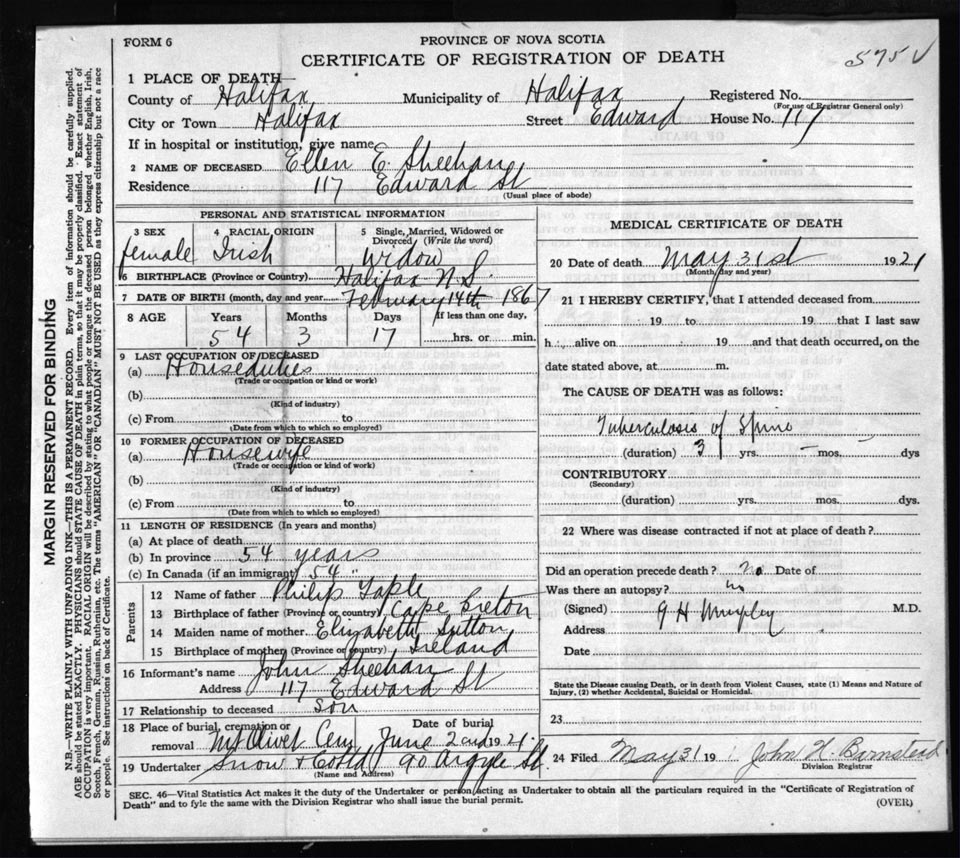 FORM 6
PROVINCE OF NOVA SCOTIA
CERTIFICATE OF REGISTRATION OF DEATH
575 V
1 PLACE OF DEATH
County of Halifax Municipality of Halifax Registered No.
(For use of Registrar General only)
City or Town Halifax Street Edward House No. 117
If in hospital or institution, give name
2 NAME OF DECEASED Ellen E. Sheehan
Residence 117 Edward St
(Usual place of abode)
PERSONAL AND STATISTICAL INFORMATION
3 SEX 4 RACIAL ORIGIN 5 Single, Married, Widowed or Divorced (Write the word)
female Irish Widow
6 BIRTHPLACE (Province or Country) Halifax N.S.
7 DATE OF BIRTH (month, day and year February 14th 1867
8 AGE Years Months Days If less than one day,
54 3 17 hrs. or min.
9 LAST OCCUPATION OF DECEASED
(a) Houseduties
(Trade or occupation or kind or work)
(b)
(Kind of industry)
(c) From to
(Date from which to which so employed)
10 FORMER OCCUPATION OF DECEASED
(a) Housewife
(Trade or occupation or kind or work)
(b)
(Kind of industry)
(c) From to
(Date from which to which so employed)
11 LENGTH OF RESIDENCE (In years and months)
(a) At place of death
(b) In province 54 years
(c) In Canada (if an immigrant) 54 "
Parents
12 Name of father Philip
13 Birthplace of father (Province or country) Cape Breton
14 Maiden name of mother Elizabeth Sutton
15 Birthplace of mother (Province or country) Ireland
16 Informant's name John Sheehan
Address 117 Edward St
17 Relationship to deceased son
18 Place of burial, cremation or removal Mt Olivet Cem Date of burial June 2nd 1921.
19 Undertaker Snow & Co Ltd 90 Argyle St.
(Name and Address)
MEDICAL CERTIFICATE OF DEATH
20 Date of death May 31st 1921
(Month day and year)
21 I HEREBY CERTIFY, that I attended deceased from
19 to 19 that I last saw
h alive on 19 and that death occurred, on the
date stated above, at m.
The CAUSE OF DEATH was as follows:
Tuberculosis of Spine
(duration) 3 yrs. — mos. dys
CONTRIBUTORY
(Secondary)
(duration) yrs. mos. dys.
22 Where was disease contracted if not at place of death?
Did an operation precede death? No Date of
Was there an autopsy? no
(Signed) G H Murphy M.D.
Address
Date
State the Disease causing Death, or in death from Violent Causes, state (1) Means and Nature of
Injury, (2) whether Accidental, Suicidal or Homicidal.
23
24 Filed May 31 19 John H. Barnstead
Division Registrar
SEC. 46—Vital Statistics Act makes it the duty of the Undertaker or person acting as Undertaker to obtain all the particulars required in the "Certificate of Registration of
Death" and to fyle the same with the Division Registrar who shall issue the burial permit.
(OVER)
MARGIN RESERVED FOR BINDING
N.B.—WRITE PLAINLY WITH UNFADING INK—THIS IS A PERMANENT RECORD. Every item of information should be carefully supplied.
AGE should be stated EXACTLY. PHYSICIANS should STATE CAUSE OF DEATH in plain terms, so that it may be properly classified. Exact statement of
OCCUPATION is very important. RACIAL ORIGIN will be described by stating to what people or tongue the deceased person belonged whether English, Irish,
Scotch, French, German, Russian, Ruthenian, etc. The terms "AMERICAN" OR "CANADIAN" MUST NOT BE USED as they express citizenship but not a race
or people. See instructions on back of Certificate.